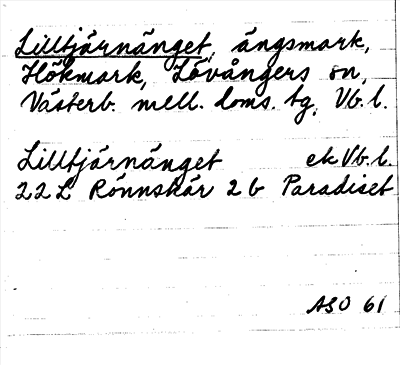 Lilltjärnänget, ängsmark,
Hökmark, Lövångers sn,
Västerb. mell. doms. tg, Vb. l.
Lilltjärnänget ek Vb. l.
22L Rönnskär 2 b Paradiset
ASO 61